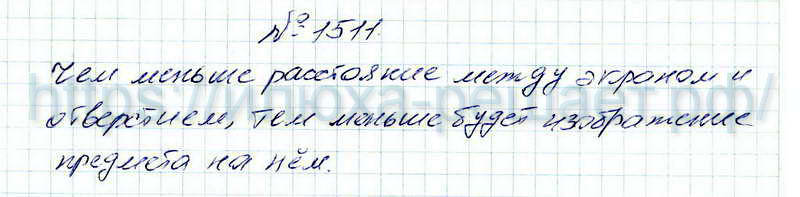 № 1511.
Чем меньше расстояние между экраном и
отверстием, тем меньше будет изображение
предмета на нём.